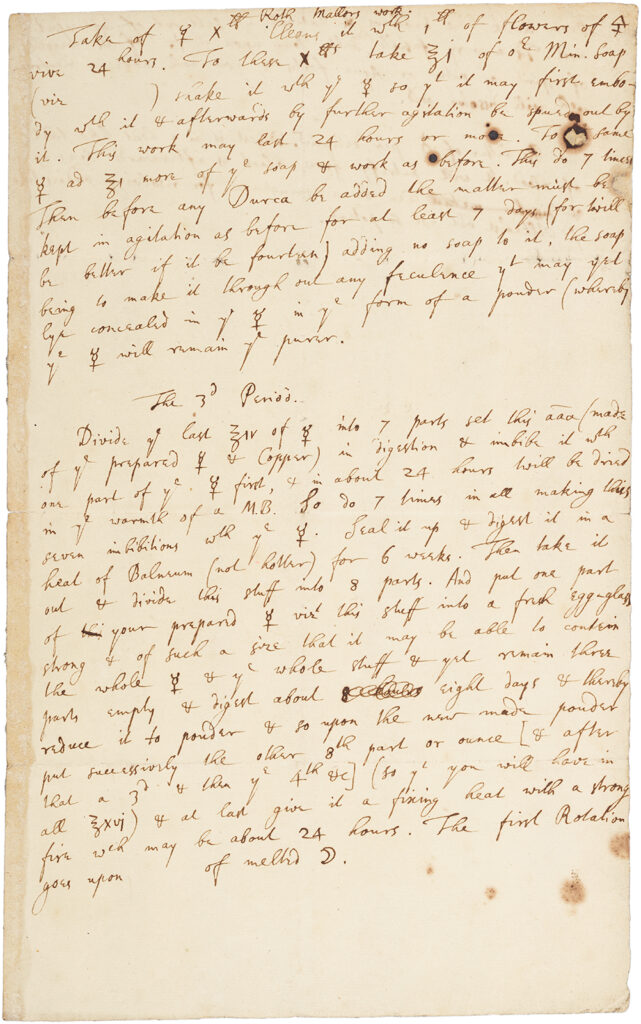 Roth Mallors work.
Take of ☿ X℔ Cleans it wth 1℔ of flowers of 🜍
vive 24 hours. To these X℔s take ℥1 of oe Min. Soap
(viz ) shake it wth ye ☿ so yt it may first embo-
dy wth it & afterwards by further agitation be spued out by
it. This work may last 24 hours or more. To same
☿ ad ℥1 more of ye soap & work as before. This do 7 times
Then before any Durca be added the matter must be
kept in agitation as before for at least 7 days (for twill
be better if it be fourteen) adding no soap to it, the soap
being to make it through out any feculence yt may yet
lye concealed in ye ☿ in ye form of a pouder (whereby
ye ☿ will remain ye purer.
The 3d Period.
Divide ye last ℥iv of ☿ into 7 parts set this aaa (made
of ye prepared ☿ & Copper) in digestion & imbibe it wth
one part of ye ☿ first, & in about 24 hours twill be dried
in ye warmth of a M.B. So do 7 times in all making this
seven imbibitions wth ye ☿. Seal it up & digest it in a
heat of Balneum (not hotter) for 6 weeks. Then take it
out & divide this stuff into 8 parts. And put one part
of your prepared ☿ vizt this stuff into a fresh egg-glass
strong & of such a size that it may be able to contein
the whole ☿ & ye whole stuff & yet remain three
parts empty & digest about eight days & thereby
reduce it to pouder & so upon the new made pouder
put successively the other 8th part or ounce [& after
that a 3d & then ye 4th &c] (so yt you will have in
all ℥xvj) & at last give it a fixing heat with a strong
fire wch may be about 24 hours. The first Rotation
goes upon of melted ☽.